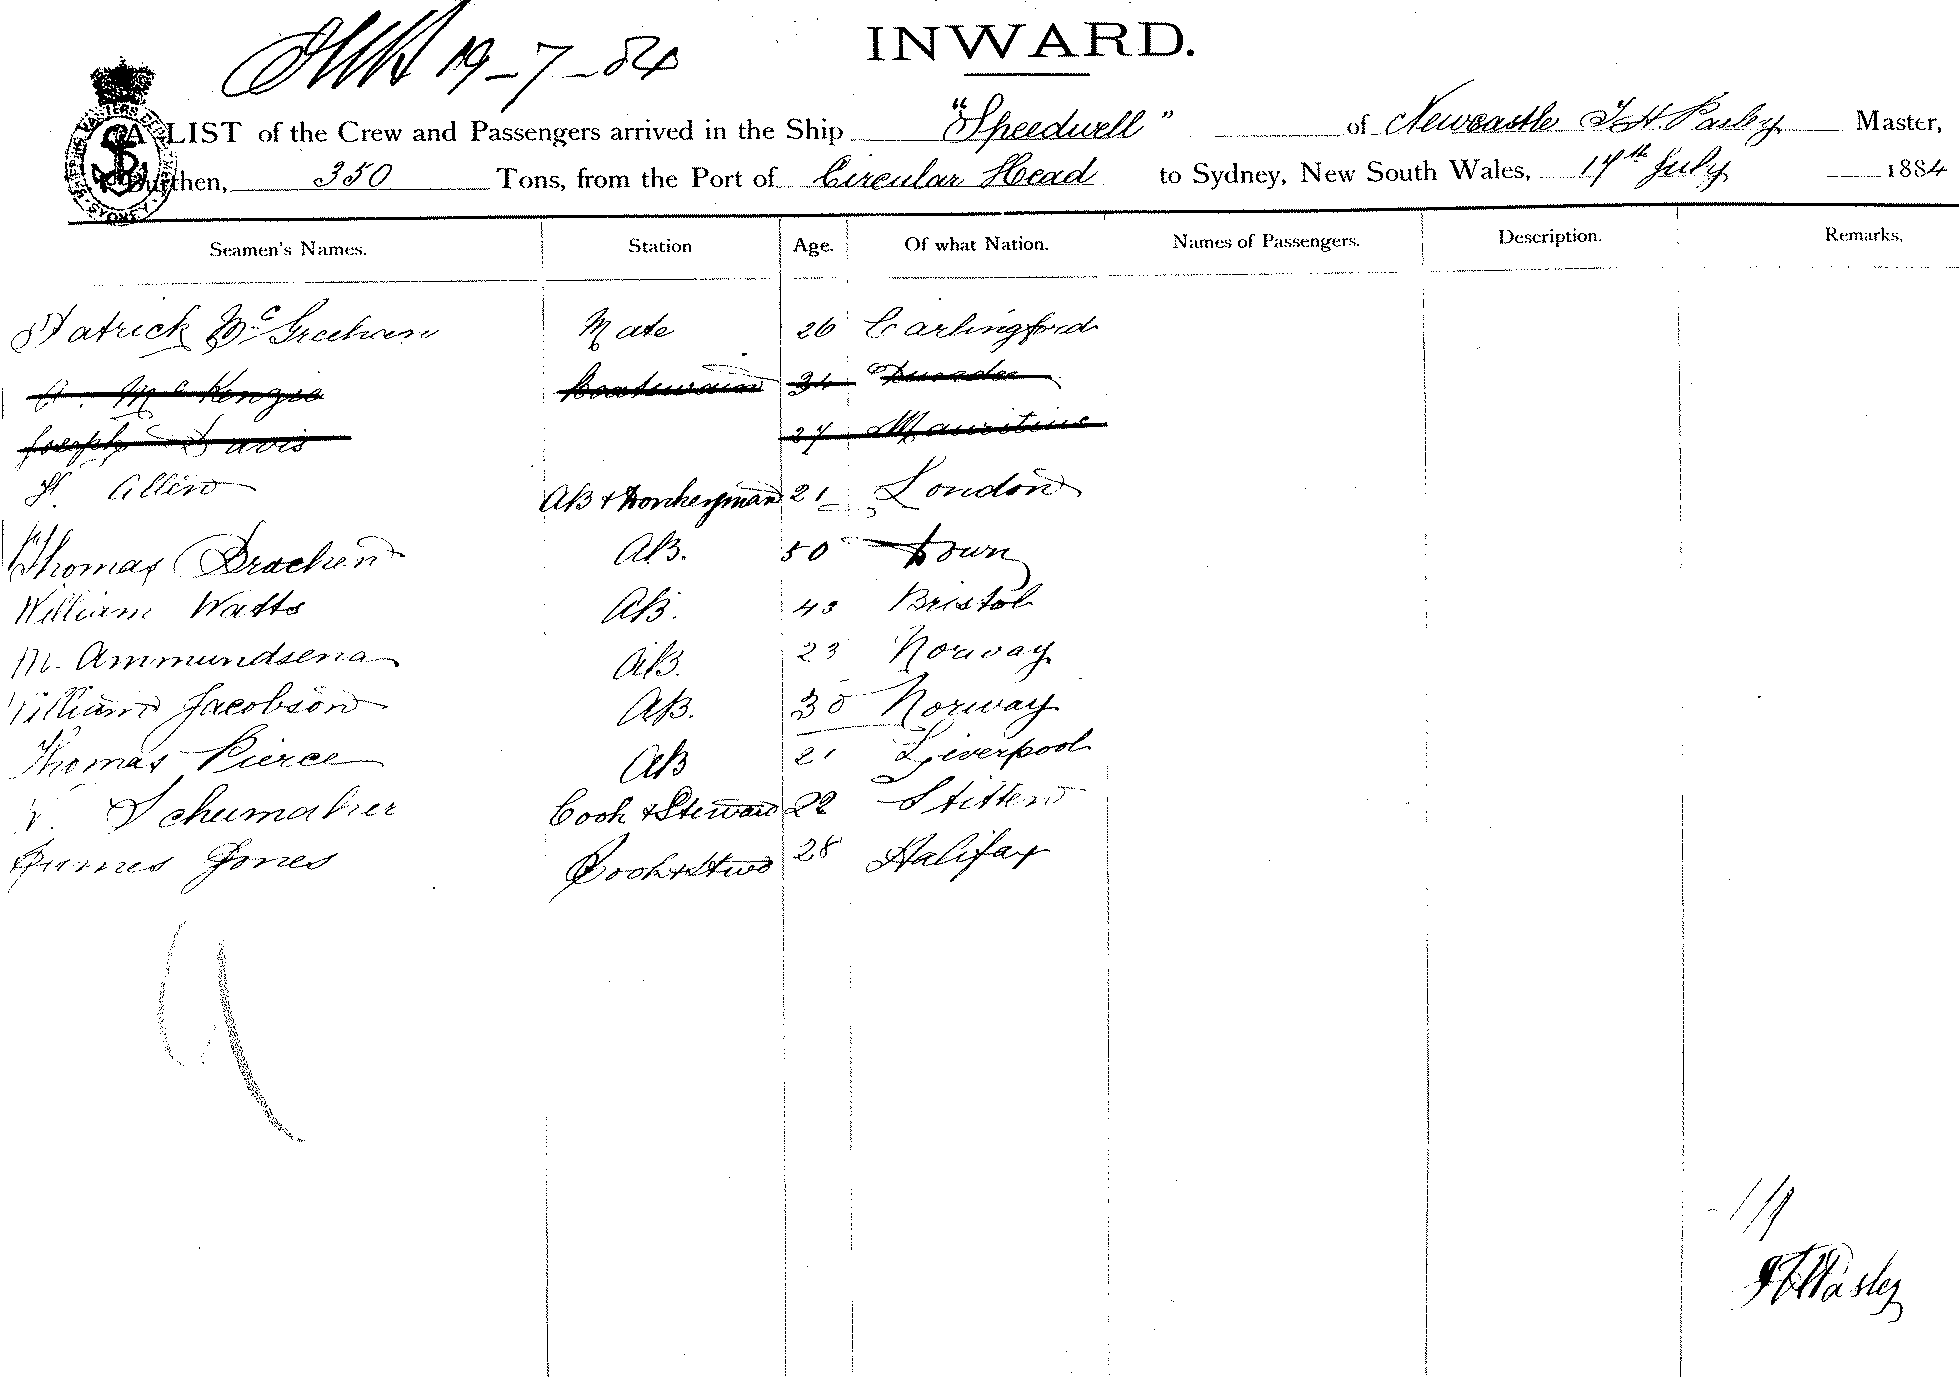 19-7-84
INWARD.
A LIST of the Crew and Passengers arrived in the Ship "Speedwell" of Newcastle Master,
Burthen, 350 Tons, from the Port of Circular Head to Sydney, New South Wales, 17th July 1884
Seamen's Names. Station Age. Of what Nation. Names of Passengers. Description. Remarks.
Patrick McGreehan Mate 26 Carlingford
A. McKenzie Boatswain 34 Dundee
Joseph Davis 27 Mauritius
H. Allen AB & Donkeyman 21 London
Thomas Bracken AB. 50 Down
William Watts AB. 43 Bristol
M. Ammundsena AB. 23 Norway
William Jacobson AB. 30 Norway
Thomas Pierce AB 21 Liverpool
Schumaker Cook & Steward 22
James Jones Cook & Stwd 28 Halifax